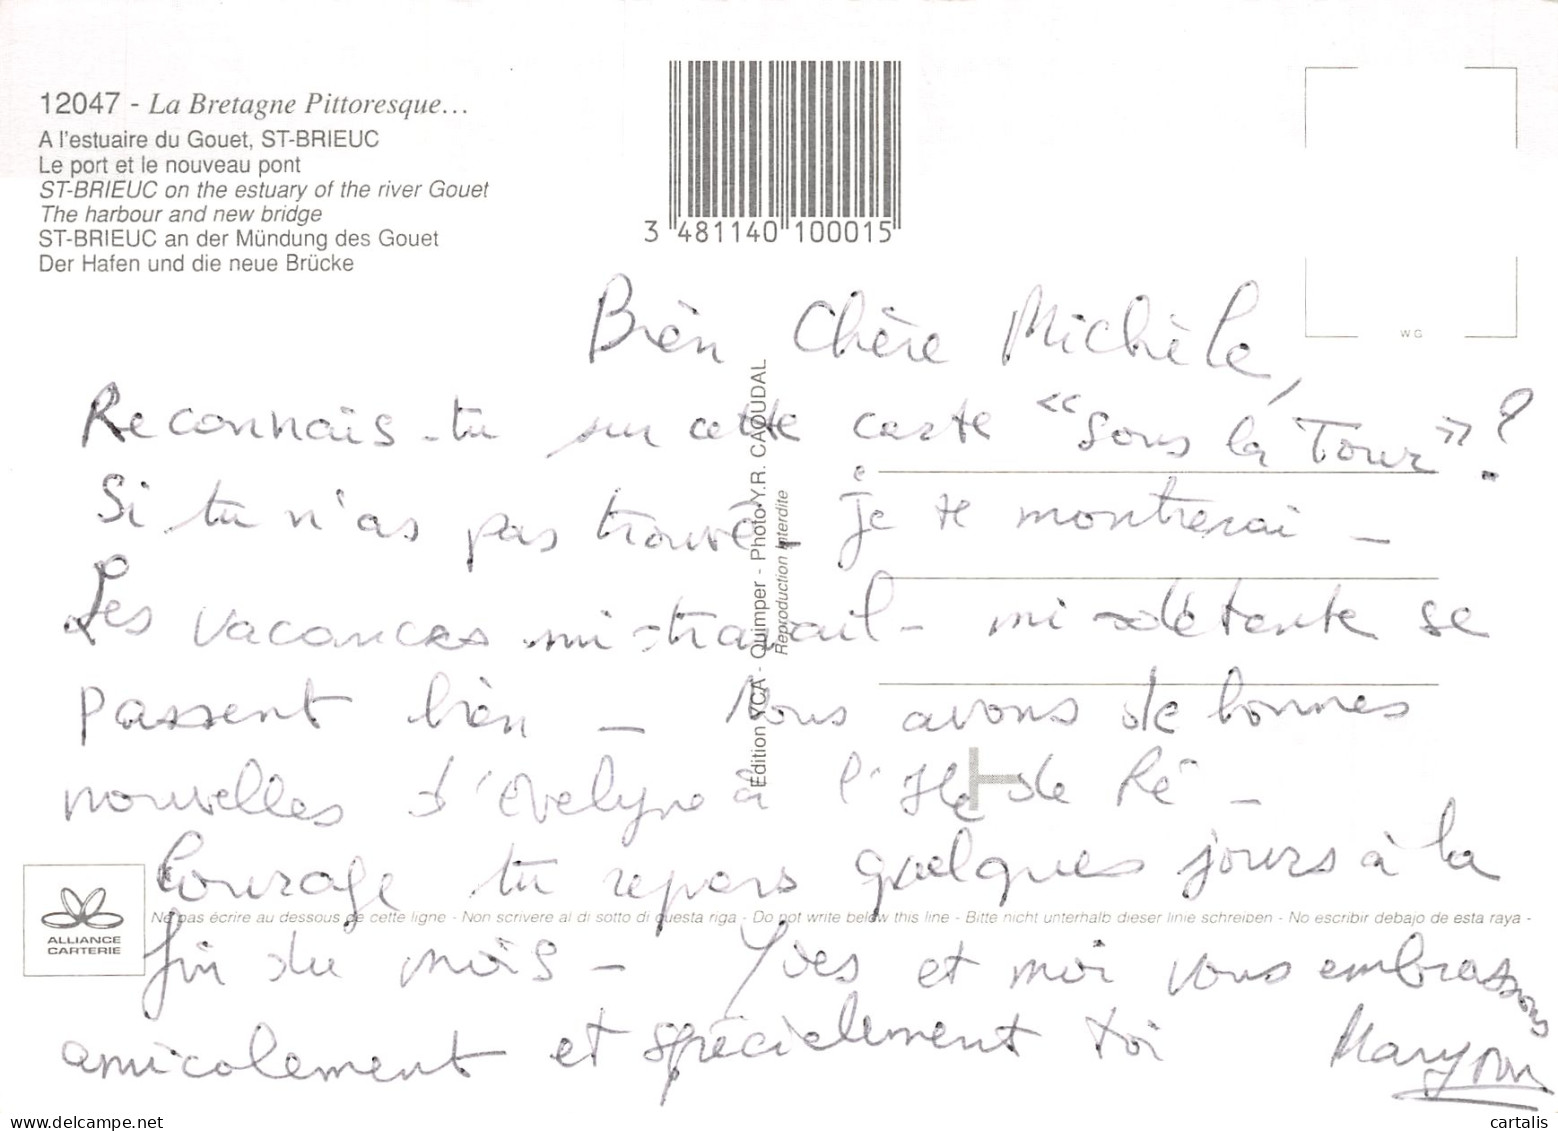 12047 - La Bretagne Pittoresque...
A l'estuaire du Gouet, ST-BRIEUC
Le port et le nouveau pont
ST-BRIEUC on the estuary of the river Gouet
The harbour and new bridge
ST-BRIEUC an der Mündung des Gouet
Der Hafen und die neue Brücke
3 481140 100015
WG
Bien Chère Michèle,
Reconnais-tu sur cette carte "Sous la Tour"?
Si tu n'as pas trouvé - je te montrerai -
Les vacances mi-travail - mi-détente se
passent bien - Nous avons de bonnes
nouvelles d'Evelyne à l'Ile de Ré -
Courage tu repars quelques jours à la
fin du mois - Yves et moi vous embrassons
amicalement et spécialement toi
Maryvon
Edition YCA - Quimper - Photo Y.R. CAOUDAL
Reproduction Interdite
ALLIANCE
CARTERIE
Ne pas écrire au dessous de cette ligne - Non scrivere al di sotto di questa riga - Do not write below this line - Bitte nicht unterhalb dieser linie schreiben - No escribir debajo de esta raya -
cartalis